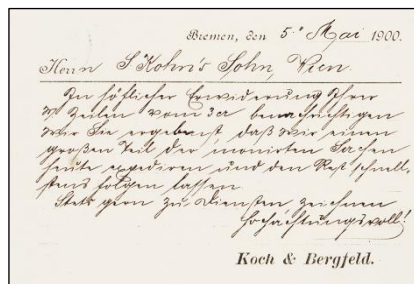 Bremen, den 5. Mai 1900.
Herrn S. Kohn's Sohn, Wien
In höflicher Erwiderung Ihrer
w Zeilen vom 3 ct benachrichtigen
wir Sie ergebenst daß wir einen
großen Teil der monirten Sachen
heute expediren und den Rest schnell-
stens folgen lassen
Stets gern zu Diensten zeichnen
hochachtungsvoll!
Koch & Bergfeld.